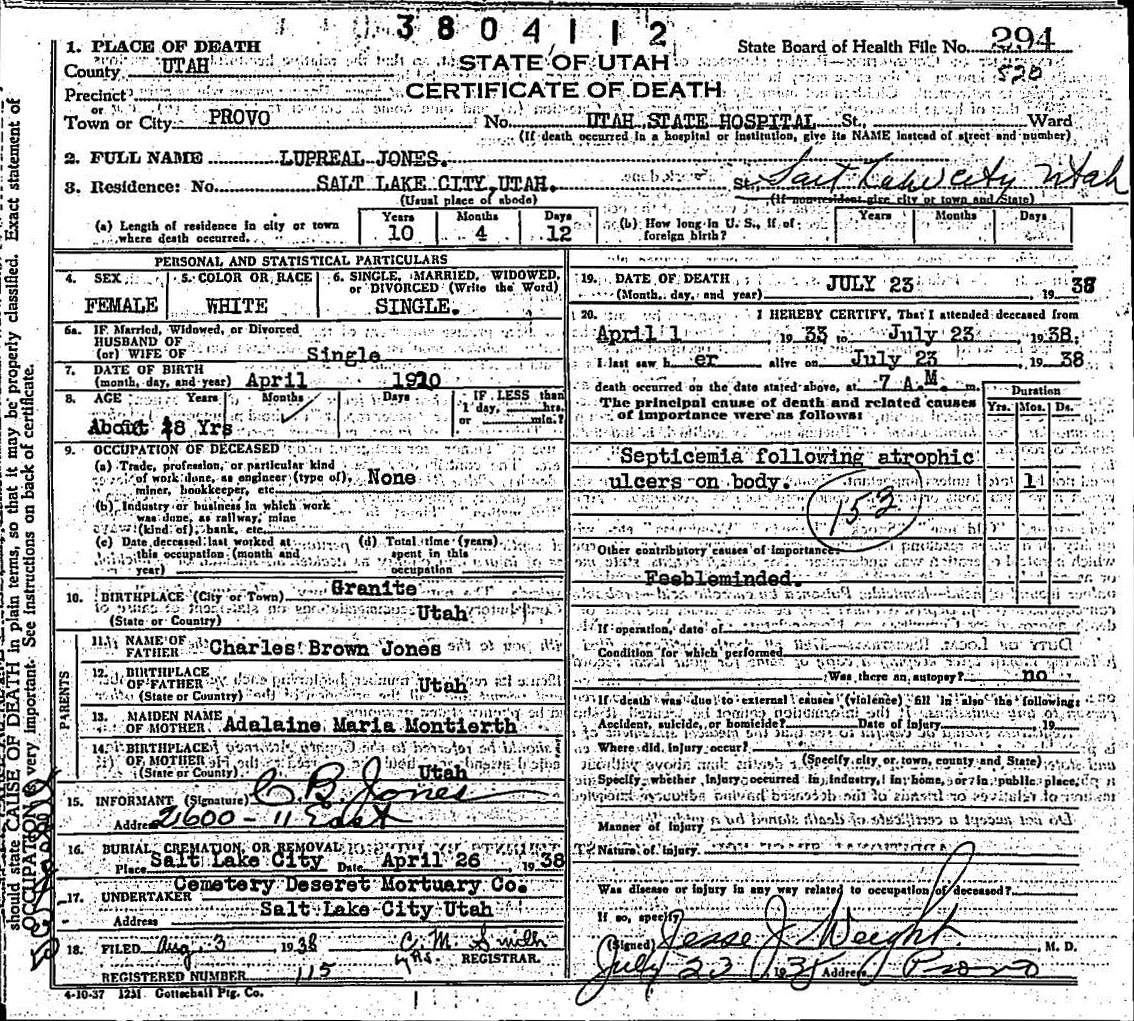 3804112
1. PLACE OF DEATH
County UTAH
Precinct
or
Town or City PROVO
STATE OF UTAH
CERTIFICATE OF DEATH
State Board of Health File No. 294
520
No. UTAH STATE HOSPITAL St., Ward
(If death occurred in a hospital or institution, give its NAME instead of street and number)
2. FULL NAME LUPREAL JONES.
3. Residence: No. SALT LAKE CITY, UTAH. St. Salt Lake City Utah
(Usual place of abode) (If non-resident give city or town and State)
(a) Length of residence in city or town where death occurred. Years 10 Months 4 Days 12
(b) How long in U. S., if of foreign birth? Years Months Days
PERSONAL AND STATISTICAL PARTICULARS
4. SEX FEMALE
5. COLOR OR RACE WHITE
6. SINGLE, MARRIED, WIDOWED, or DIVORCED (Write the Word) SINGLE.
6a. IF Married, Widowed, or Divorced
HUSBAND OF
(or) WIFE OF Single
7. DATE OF BIRTH
(month, day, and year) April 1910
8. AGE Years Months Days IF LESS than
1 day, hrs.
or min.?
About 8 Yrs
9. OCCUPATION OF DECEASED
(a) Trade, profession, or particular kind
of work done, as engineer (type of), None
miner, bookkeeper, etc.
(b) Industry or business in which work
was done, as railway, mine
(kind of), bank, etc.
(c) Date deceased last worked at
this occupation (month and
year)
(d) Total time (years)
spent in this
occupation
10. BIRTHPLACE (City or Town) Granite
(State or Country) Utah
PARENTS
11. NAME OF
FATHER Charles Brown Jones
12. BIRTHPLACE
OF FATHER Utah
(State or Country)
13. MAIDEN NAME
OF MOTHER Adalaine Maria Montierth
14. BIRTHPLACE
OF MOTHER
(State or Country) Utah
15. INFORMANT (Signature) C B Jones
Address 2600 - 11 East
16. BURIAL, CREMATION, OR REMOVAL
Place Salt Lake City Date April 26, 1938
Cemetery Deseret Mortuary Co.
17. UNDERTAKER
Address Salt Lake City Utah
18. FILED Aug. 3 1938 C. M. Smith
REGISTRAR.
REGISTERED NUMBER 115
4-10-37 12M Gottschall Ptg. Co.
19. DATE OF DEATH JULY 23
(Month, day, and year) , 1938
20. I HEREBY CERTIFY, That I attended deceased from
April 1 1933 to July 23 , 1938.
I last saw her alive on July 23 , 1938
death occurred on the date stated above, at 7 A.M. m.
The principal cause of death and related causes
of importance were as follows:
Duration
Yrs. Mos. Ds.
Septicemia following atrophic
ulcers on body. 1
152
Other contributory causes of importance:
Feebleminded.
If operation, date of
Condition for which performed
Was there an autopsy? no
If death was due to external causes (violence) fill in also the following:
Accident, suicide, or homicide? Date of injury 19
Where did injury occur?
(Specify city or town, county and State)
Specify whether injury occurred in industry, in home, or in public place.
Manner of injury
Nature of injury
Was disease or injury in any way related to occupation of deceased?
If so, specify
(Signed) Jesse J Weight. M. D.
July 23 1938 Address Provo
should state CAUSE OF DEATH in plain terms, so that it may be properly classified. Exact statement of
OCCUPATION is very important. See instructions on back of certificate.